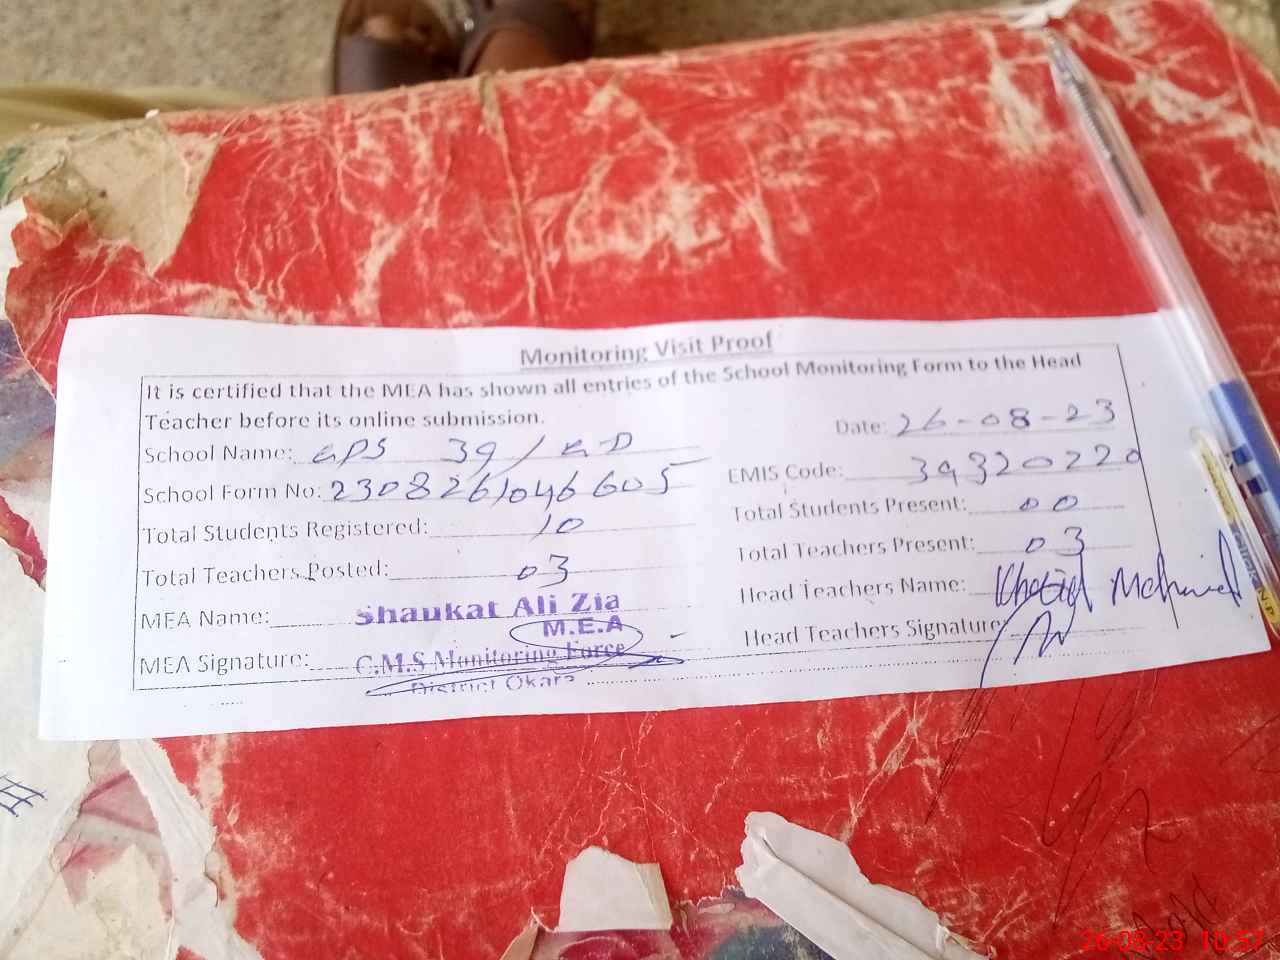 Monitoring Visit Proof
It is certified that the MEA has shown all entries of the School Monitoring Form to the Head
Teacher before its online submission.
Date: 26-08-23
School Name: GPS 39/GD
EMIS Code: 39320220
School Form No: 2308261046605
Total Students Present: 00
Total Students Registered: 10
Total Teachers Present: 03
Total Teachers Posted: 03
Head Teachers Name: Khalid Mehmood
MEA Name: Shaukat Ali Zia
M.E.A
Head Teachers Signature:
MEA Signature: C.M.S Monitoring Force
District Okara
26-08-23 10:57